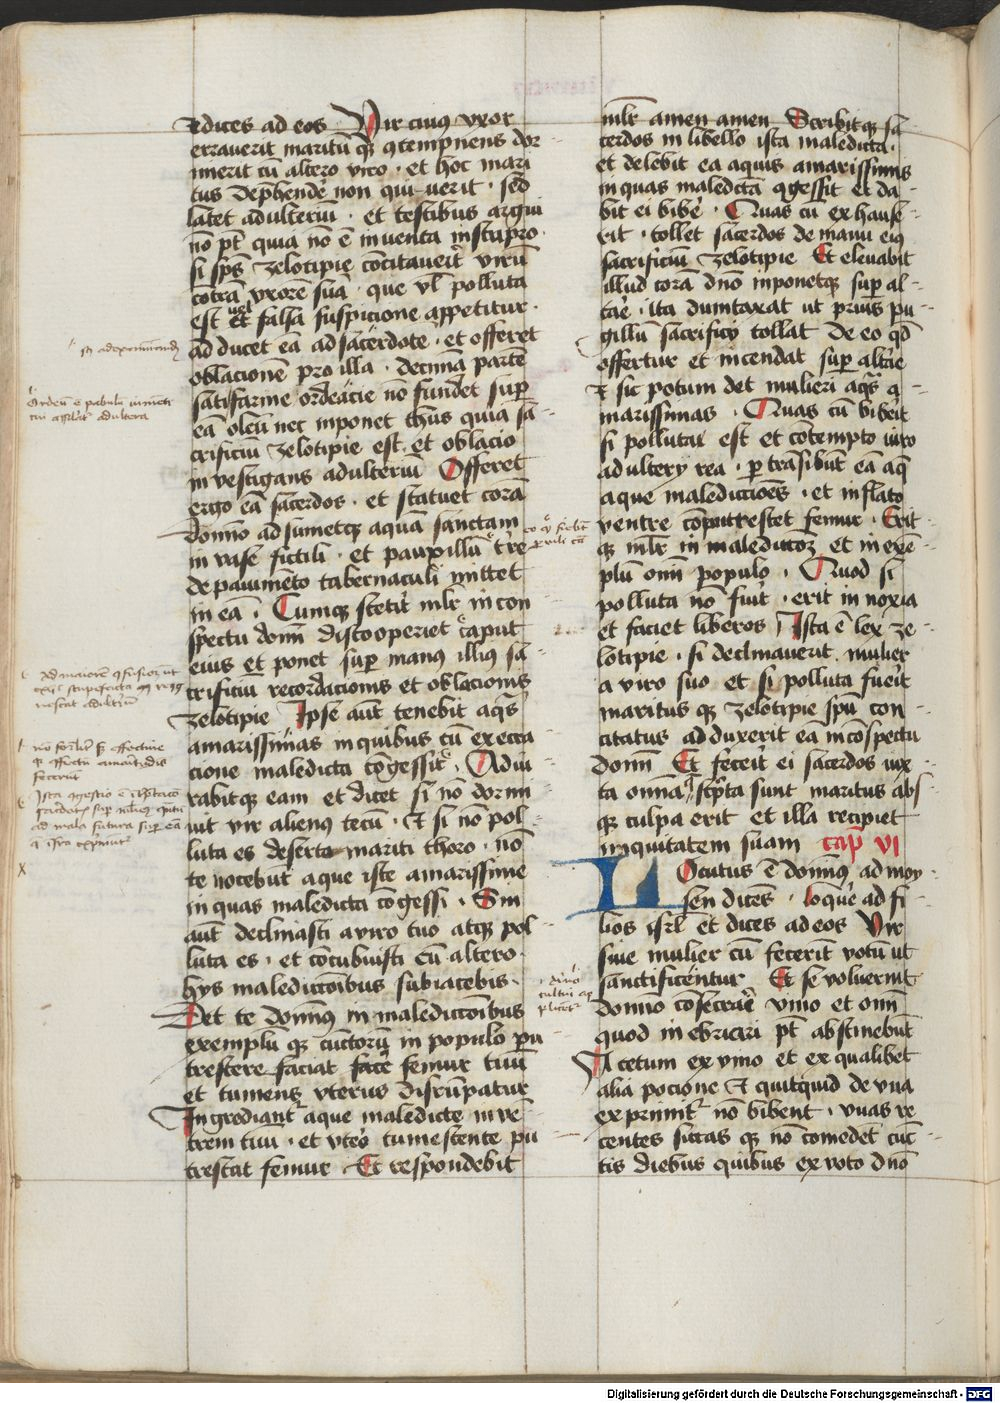 et dices ad eos Vir cuiꝰ vxor
errauerit maritū qꝫ ꝯtempnens dor
mierit cū altero viro · et hoc mari
tus dephendē non qui uerit · sed
latet adulteriū · et testibus argui
nō pt̄ quia nō ē inuenta in stupro ·
si sp̄s zelotipie cōcitauerit virū
cōtra vxorē suā · que vl̄ polluta
est uel et falsa suspicione appetitur ·
ad ducet eā ad sacerdotē · et offeret
oblacionē pro illa · decimā partē
sati farine ordeacie nō fundet sup̄
eā oleū nec inponet thus quia sa
crificiū zelotipie est · et oblacio
inuestigans adulteriū Offeret
ergo eā sacerdos · et statuet corā
domīo ad sumetqꝫ aquā sanctam
in vase fictili · et pauxillū t̄re
de pauimēto tabernaculi mittet
in eā · Cumqꝫ stetit mlr̄ in con
spectu domī discooperiet caput
eius et ponet sup̄ manus illiꝰ sa
crificiū recordacionis et oblacionis
zelotipie Ipse aūt tenebit aqs̄
amarissimas in quibus cū execra
cione maledicta cōgessit · Adiu
rabitqꝫ eam et dicet si nō dormi
uit vir alienꝰ tecū · et si nō pol
luta es deserto mariti thoro · nō
te nocebūt aque iste amarissime
in quas maledicta cōgessi · Sin
aūt declinasti a viro tuo atqꝫ pol
luta es · et cōcubuisti cū altero ·
hys maledictōibus subiacebis ·
Det te domīꝰ in maledictōibus
exemplū qꝫ cūctorū in populo pu
trescere faciat femur tuū
et tumens vterus disrūpatur
Ingrediant̄ aque maledicte in vē
trem tuū · et vtero tumescente pu
trescat femur Et respondebit
mlr̄ amen amen Scribitqꝫ sa
cerdos in libello ista maledicta ·
et delebit ea aquis amarissimis
in quas maledicta ꝯgessit et da
bit ei bibē · Quas cū exhause
rit · tollet sacerdos de manu eiꝰ
sacrificiū zelotipie Et eleuabit
illud corā dn̄o inponetqꝫ sup̄ al
tare · ita dumtaxat ut prius pu
gillū sacrificy tollat de eo qd̄
offertur et incendat sup̄ altare
et sic potum det mulieri aqs̄ a
marissimas · Quas cū biberit
si polluta est et cōtempto viro
adultery rea · p̄transibūt eā aq̄
aque malediccioēs · et inflato
ventre cōputrescet femur · Erit
qꝫ mlr̄ in maledictōꝫ et in exē
plū omī populo · Quod si
polluta nō fuit · erit in noxia
et faciet liberos Ista ē lex ze
lotipie · si declinauerit mulier
a viro suo et si polluta fuerit
maritus qꝫ zelotipie sp̄u con
citatus adduxerit eā in cōspectu
domī Et fecerit ei sacerdos iux
ta omnia q̄ scpta sunt maritus abs
qꝫ culpa erit et illa recipiet
iniquitatem suam cap̄ VI
Locutus ē domīꝰ ad moy
sen dicēs · loquē ad fi
lios isrl̄ et dices ad eos Vir
siue mulier cū fecerīt votū ut
sanctificentur Et se voluerint
domīo cōsecrare vino et omī
quod inebriari pt̄ abstinebūt
Acetum ex vino et ex qualibet
alia pocione et quitquid de vua
exprimit̄ nō bibent · vuas re
centes siccas qꝫ nō comedēt cūc
tis diebus quibus ex voto dn̄o
Digitalisierung gefördert durch die Deutsche Forschungsgemeinschaft · DFG